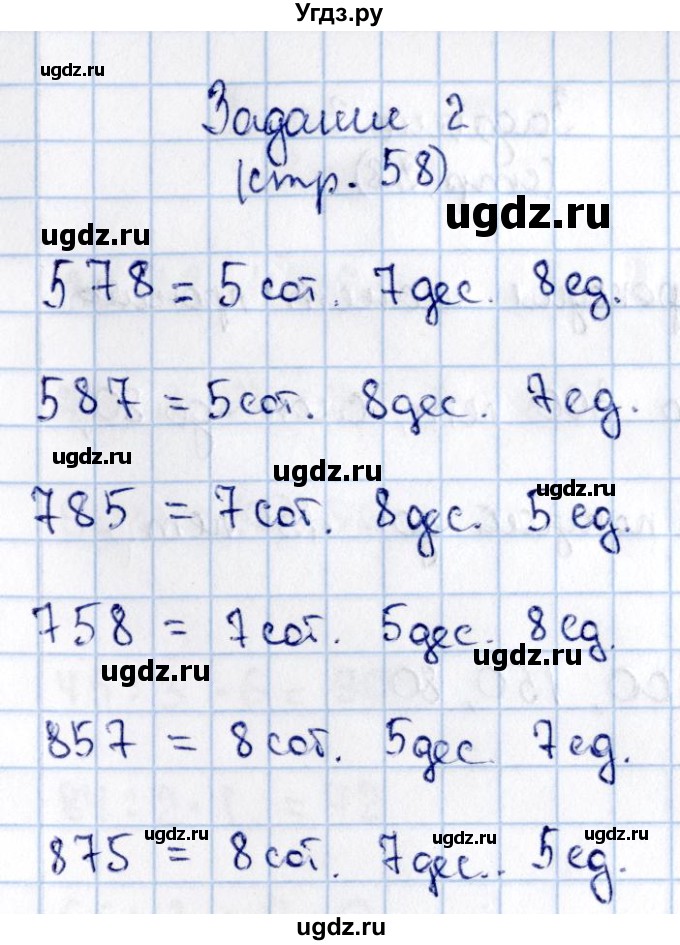 Угдз.ру
ugdz.ru
Задание 2
(стр. 58)
ugdz.ru
ugdz.ru
578 = 5 сот. 7 дес. 8 ед.
587 = 5 сот. 8 дес. 7 ед.
ugdz.ru
ugdz.ru
ugdz.ru
785 = 7 сот. 8 дес. 5 ед.
758 = 7 сот. 5 дес. 8 ед.
ugdz.ru
ugdz.ru
857 = 8 сот. 5 дес. 7 ед.
ugdz.ru
ugdz.ru
ugdz.ru
875 = 8 сот. 7 дес. 5 ед.
ugdz.ru